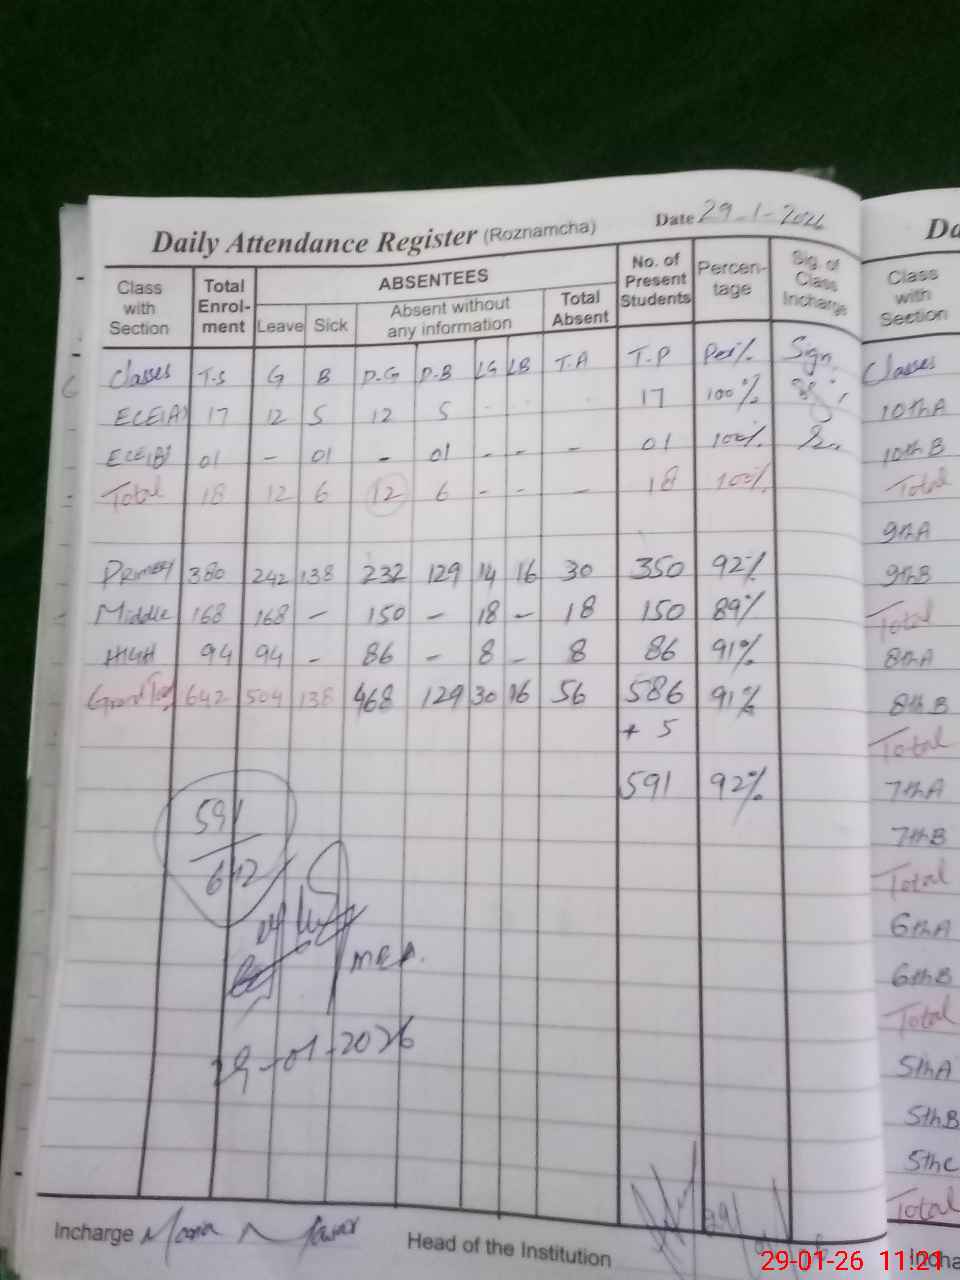 Daily Attendance Register (Roznamcha) Date 29-1-2026
Class with Section Total Enrol-ment ABSENTEES No. of Present Students Percen-tage Sig. of Class Incharge
Leave Sick Absent without any information Total Absent
Classes T.S G B P.G P.B LG LB T.A T.P Per% Sign
ECE(A) 17 12 5 12 5 - - - 17 100%
ECE(B) 01 - 01 - 01 - - - 01 100%
Total 18 12 6 12 6 - - - 18 100%
Primary 380 242 138 232 129 14 16 30 350 92%
Middle 168 168 - 150 - 18 - 18 150 89%
HIGH 94 94 - 86 - 8 - 8 86 91%
Grand Total 642 504 138 468 129 30 16 56 586 91%
+ 5
591 92%
591
642
MEA.
29-01-2026
Incharge
Head of the Institution
Da
Class with Section
Classes
10thA
10thB
Total
9thA
9thB
Total
8thA
8thB
Total
7thA
7thB
Total
6thA
6thB
Total
5thA
5thB
5thC
Total
Incha
29-01-26 11:21